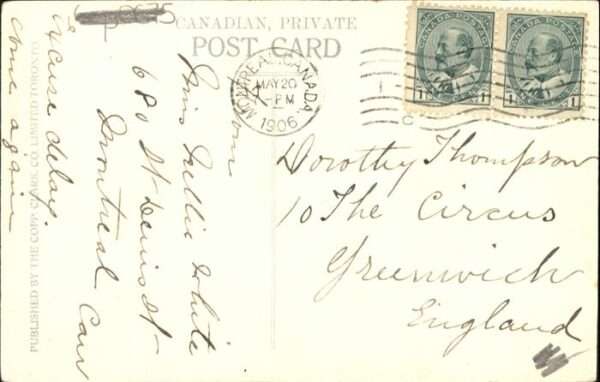 CANADIAN, PRIVATE
POST CARD
MONTREAL, CANADA
MAY 20
PM
1906
CANADA POSTAGE
1 1
CANADA POSTAGE
1 1
Dorothy Thompson
10 The Circus
Greenwich
England
from
Miss Nellie White
680 St Denis St
Montreal Can
Excuse delay.
Come again
PUBLISHED BY THE COPP, CLARK, CO. LIMITED TORONTO